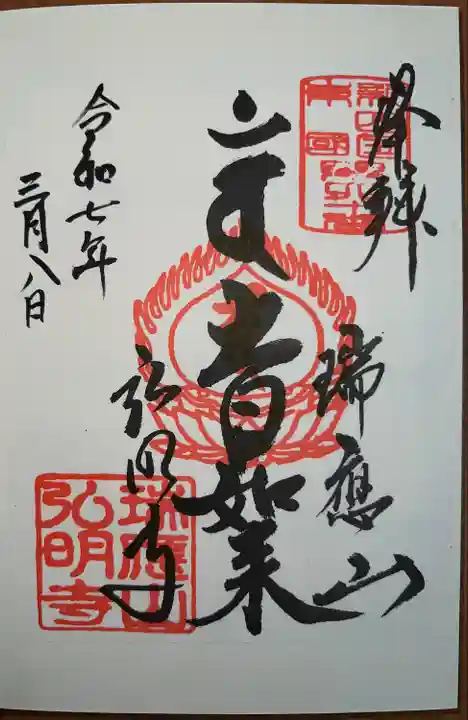 奉拝
瑞應山
如来
弘明寺
令和七年
三月八日
瑞應山
弘明寺